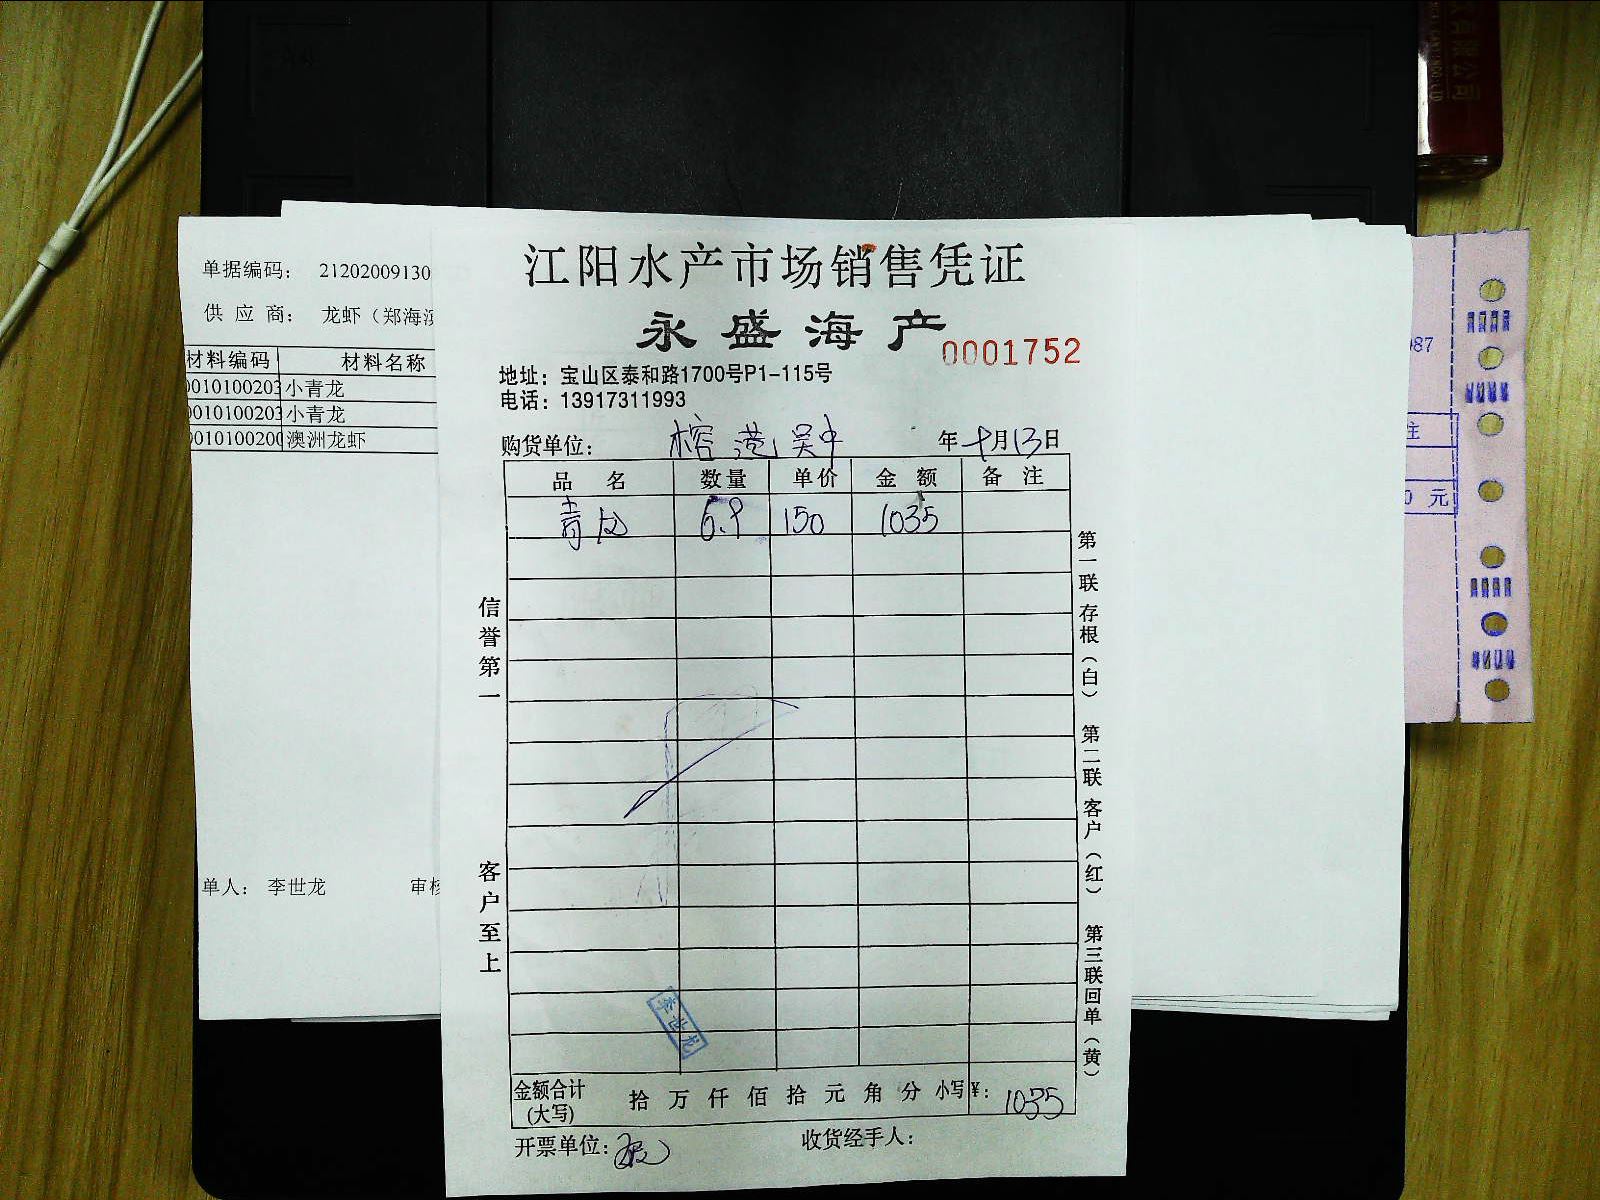 单据编码： 21202009130
供 应 商： 龙虾（郑海滨
材料编码 材料名称
010100203 小青龙
010100203 小青龙
010100200 澳洲龙虾
单人： 李世龙 审核
江阳水产市场销售凭证
永盛海产
0001752
地址：宝山区泰和路1700号P1-115号
电话：13917311993
购货单位： 榕港吴中 年 9月13日
品 名 数量 单价 金 额 备 注
青龙 6.9 150 1035
信誉第一
客户至上
第一联 存根（白） 第二联 客户（红） 第三联 回单（黄）
李世龙
金额合计（大写） 拾 万 仟 佰 拾 元 角 分 小写¥： 1035
开票单位：
收货经手人：
087
注
0 元
限公司